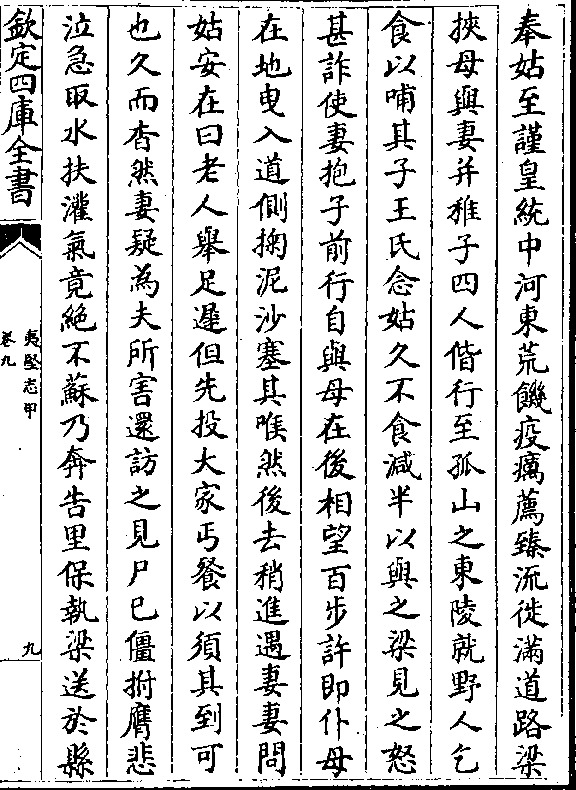 奉姑至謹皇統中河東荒饑疫癘薦臻流徙滿道路梁
挾母與妻并稚子四人偕行至孤山之東陵就野人乞
食以哺其子王氏念姑久不食減半以與之梁見之怒
甚詐使妻抱子前行自與母在後相望百步許即仆母
在地曳入道側掬泥沙塞其喉然後去稍進遇妻妻問
姑安在曰老人舉足遲但先投大家丐餐以須其到可
也久而杳然妻疑為夫所害還訪之見尸已僵拊膺悲
泣急取水扶灌氣竟絕不蘇乃奔告里保執梁送於縣
欽定四庫全書
夷堅志甲
卷九
九